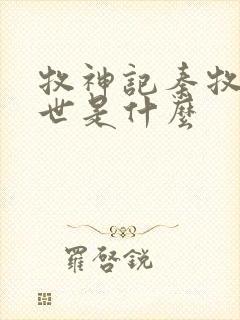 牧神記秦牧
世是什麼
羅啓銳